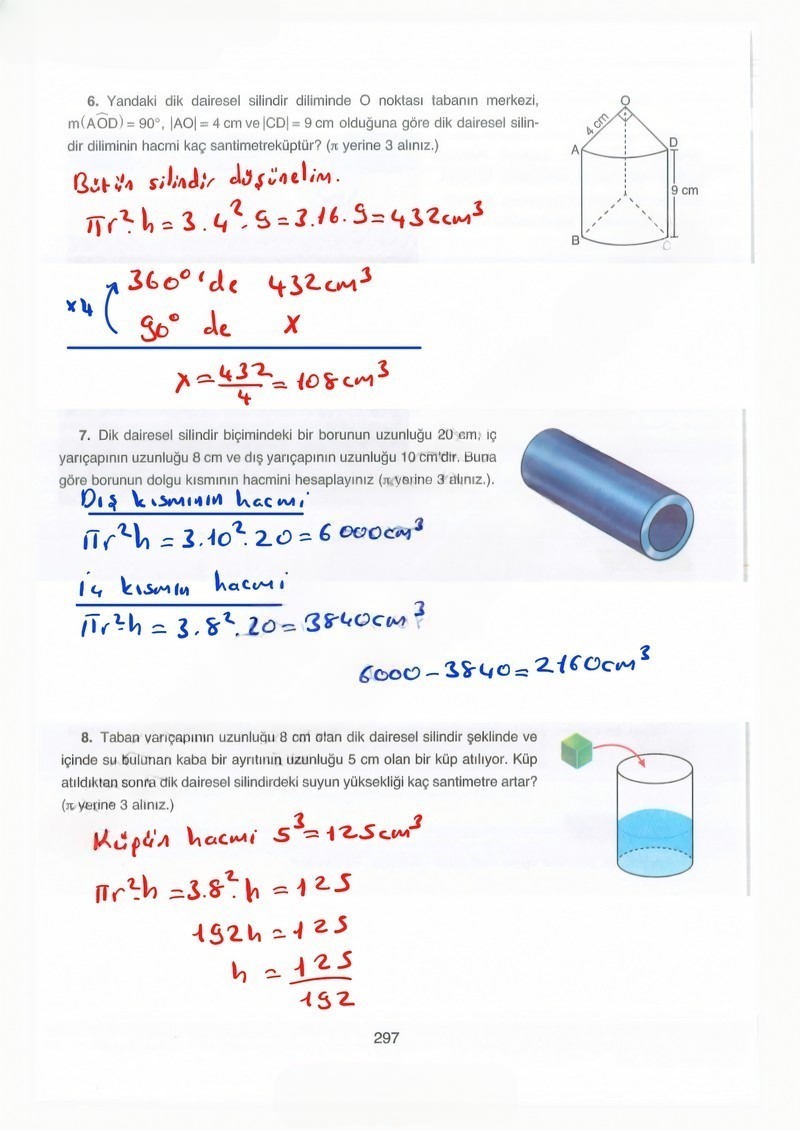 6. Yandaki dik dairesel silindir diliminde O noktası tabanın merkezi,
m(AOD) = 90°, |AO| = 4 cm ve |CD| = 9 cm olduğuna göre dik dairesel silin-
dir diliminin hacmi kaç santimetreküptür? (π yerine 3 alınız.)
O
4 cm
A
D
9 cm
B
C
Bütün silindir düşünelim.
πr².h = 3.4².9 = 3.16.9 = 432cm³
360°'de 432cm³
x4
90° de x
x = 432/4 = 108cm³
7. Dik dairesel silindir biçimindeki bir borunun uzunluğu 20 cm, iç
yarıçapının uzunluğu 8 cm ve dış yarıçapının uzunluğu 10 cm'dir. Buna
göre borunun dolgu kısmının hacmini hesaplayınız (π yerine 3 alınız.).
Dış kısmının hacmi
πr²h = 3.10².20 = 6000cm³
iç kısmın hacmi
πr².h = 3.8².20 = 3840cm³
6000 – 3840 = 2160cm³
8. Taban yarıçapının uzunluğu 8 cm olan dik dairesel silindir şeklinde ve
içinde su bulunan kaba bir ayrıtının uzunluğu 5 cm olan bir küp atılıyor. Küp
atıldıktan sonra dik dairesel silindirdeki suyun yüksekliği kaç santimetre artar?
(π yerine 3 alınız.)
Küpün hacmi 5³ = 125cm³
πr².h = 3.8².h = 125
192h = 125
h = 125/192
297